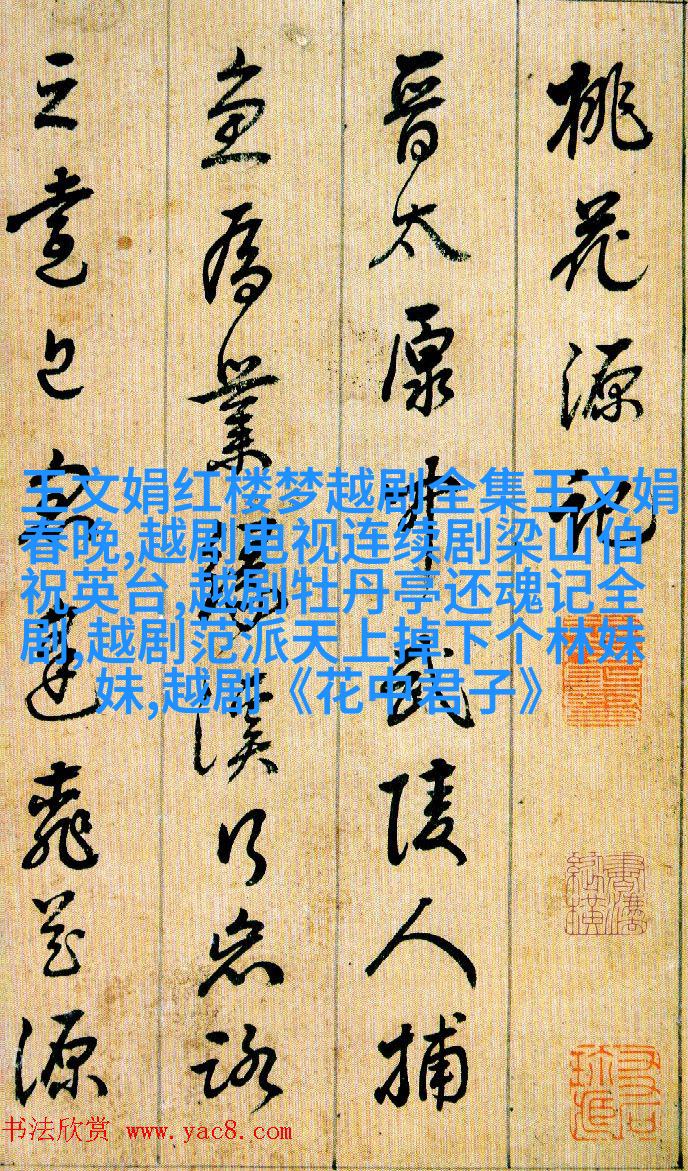 桃花源記
晉太原中武陵人捕
魚為業緣溪行忘路
之遠近
源
王文娟红楼梦越剧全集王文娟
春晚,越剧电视连续剧梁山伯
祝英台,越剧牡丹亭还魂记全
剧,越剧范派天上掉下个林妹
妹,越剧《花中君子》
书法欣赏 www.yac8.com